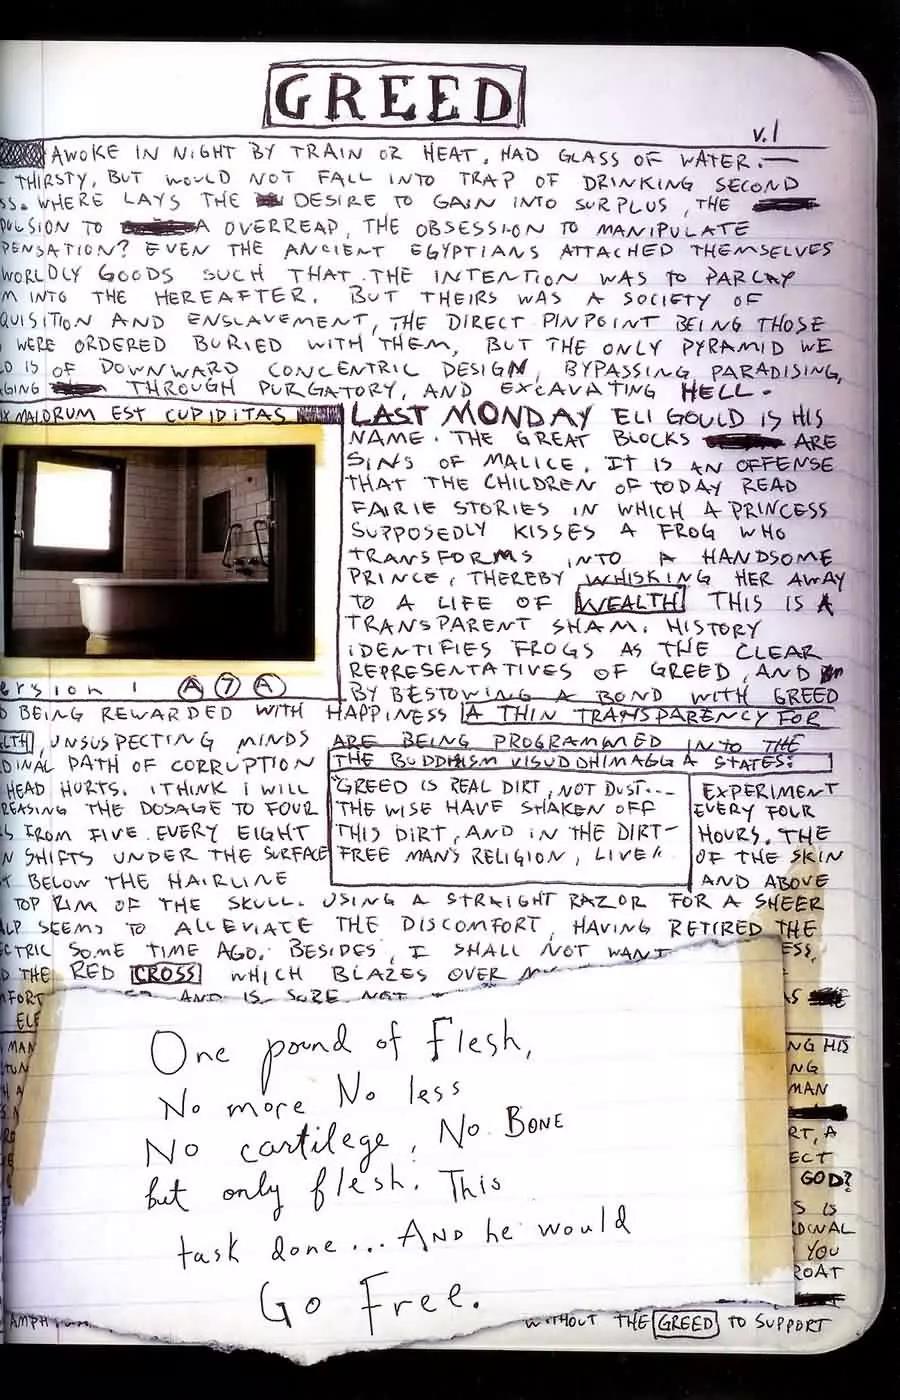 GREED
v.1
AWOKE IN NIGHT BY TRAIN OR HEAT. HAD GLASS OF WATER.
THIRSTY, BUT WOULD NOT FALL INTO TRAP OF DRINKING SECOND
SS. WHERE LAYS THE DESIRE TO GAIN INTO SURPLUS, THE
PULSION TO A OVERREAP, THE OBSESSION TO MANIPULATE
PENSATION? EVEN THE ANCIENT EGYPTIANS ATTACHED THEMSELVES
WORLDLY GOODS SUCH THAT THE INTENTION WAS TO PARLAY
M INTO THE HEREAFTER. BUT THEIRS WAS A SOCIETY OF
QUISITION AND ENSLAVEMENT, THE DIRECT PINPOINT BEING THOSE
WERE ORDERED BURIED WITH THEM, BUT THE ONLY PYRAMID WE
D IS OF DOWNWARD CONCENTRIC DESIGN, BYPASSING PARADISING,
GING THROUGH PURGATORY, AND EXCAVATING HELL.
X MALORUM EST CUPIDITAS
LAST MONDAY ELI GOULD IS HIS
NAME. THE GREAT BLOCKS ARE
SINS OF MALICE. IT IS AN OFFENSE
THAT THE CHILDREN OF TODAY READ
FAIRIE STORIES IN WHICH A PRINCESS
SUPPOSEDLY KISSES A FROG WHO
TRANSFORMS INTO A HANDSOME
PRINCE, THEREBY WHISKING HER AWAY
TO A LIFE OF WEALTH THIS IS A
TRANSPARENT SHAM. HISTORY
IDENTIFIES FROGS AS THE CLEAR
REPRESENTATIVES OF GREED, AND
BY BESTOWING A BOND WITH GREED
ersion 1 A 7 A
D BEING REWARDED WITH HAPPINESS A THIN TRANSPARENCY FOR
LTH, UNSUSPECTING MINDS ARE BEING PROGRAMMED INTO THE
DINAL PATH OF CORRUPTION
THE BUDDHISM VISUDDHIMAGGA STATES:
HEAD HURTS. I THINK I WILL
REASING THE DOSAGE TO FOUR
S FROM FIVE EVERY EIGHT
N SHIFTS UNDER THE SURFACE
T BELOW THE HAIRLINE
"GREED IS REAL DIRT, NOT DUST...
THE WISE HAVE SHAKEN OFF
THIS DIRT, AND IN THE DIRT-
FREE MAN'S RELIGION, LIVE"
EXPERIMENT
EVERY FOUR
HOURS. THE
OF THE SKIN
AND ABOVE
TOP RIM OF THE SKULL. USING A STRAIGHT RAZOR FOR A SHEER
ALP SEEMS TO ALLEVIATE THE DISCOMFORT, HAVING RETIRED THE
ECTRIC SOME TIME AGO. BESIDES, I SHALL NOT WANT ESS,
D THE RED CROSS WHICH BLAZES OVER
MFORT AND IS SORE NOT AS
ELE
MAN NG HIS
TUN NG
H A MAN
RT, A
ECT
GOD?
S IS
RDINAL
YOU
ROAT
One pound of Flesh,
No more No less
No cartilege, No Bone
but only flesh. This
task done... And he would
Go Free.
AMPH WITHOUT THE GREED TO SUPPORT